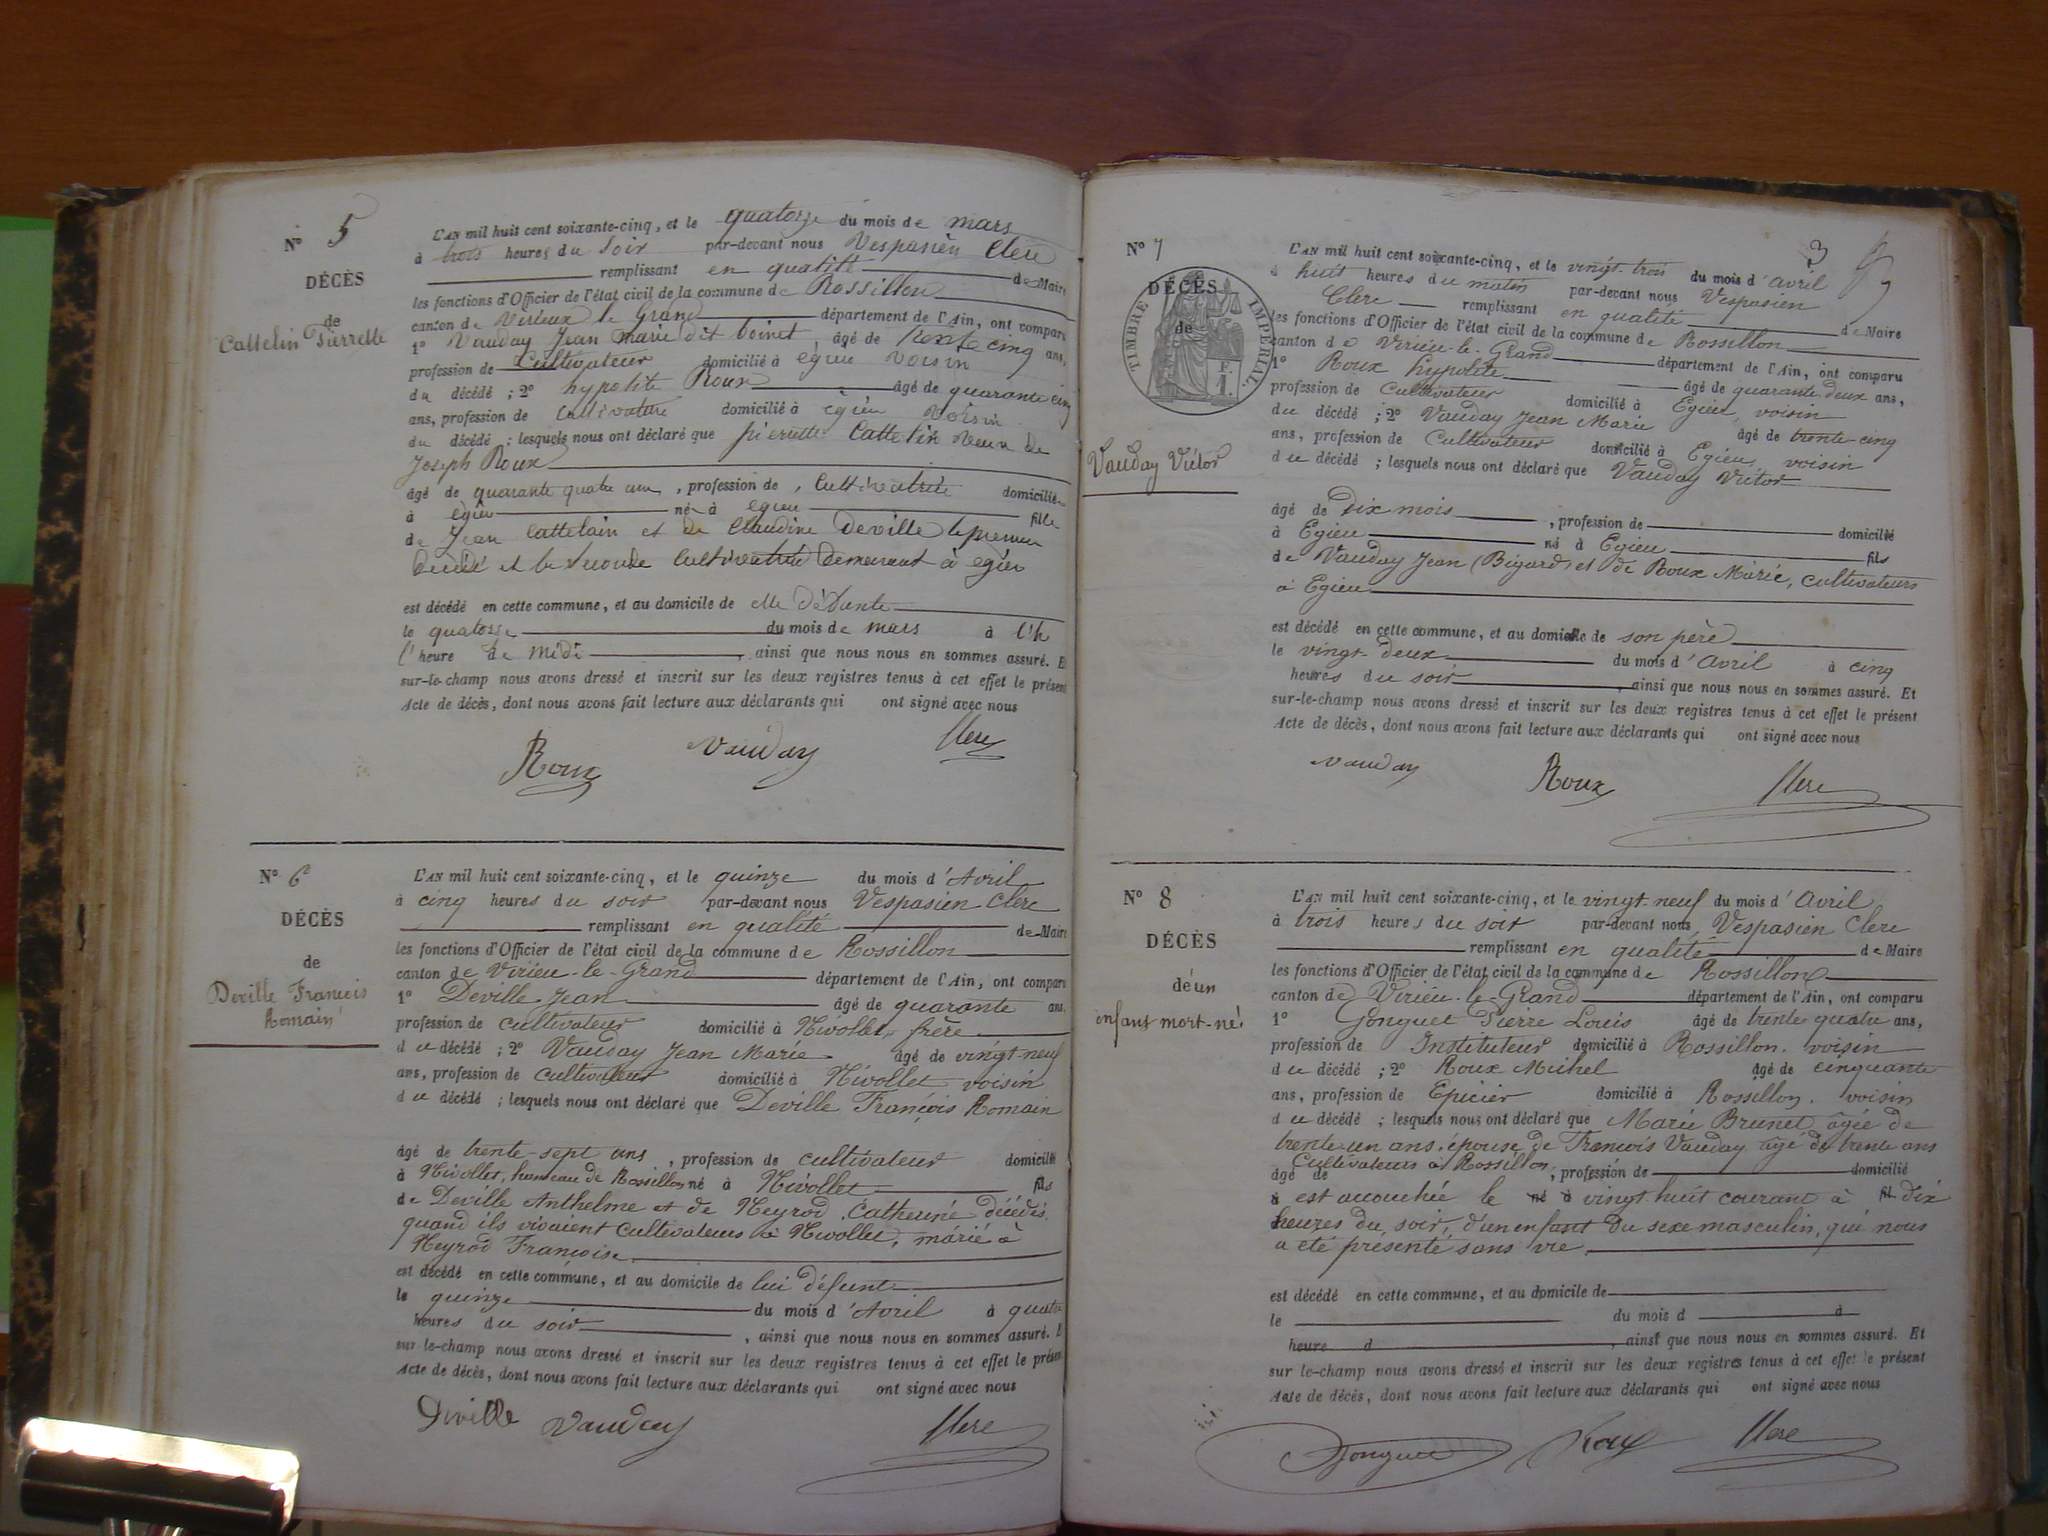 N° 5
DÉCÈS
de
Cattelin Pierrette
L'AN mil huit cent soixante-cinq, et le quatorze du mois de mars
à trois heures du Soir par-devant nous Vespasien Clerc
remplissant en qualité de Maire
les fonctions d'Officier de l'état civil de la commune de Rossillon
canton de Virieux le Grand département de l'Ain, ont comparu
1° Vauday Jean marie dit boinet, âgé de trente cinq ans,
profession de Cultivateur domicilié à egieu voisin
du décédé ; 2° hypolite Roux âgé de quarante cinq
ans, profession de domicilié à égieu voisin
du décédé ; lesquels nous ont déclaré que pierrette Cattelin veuve de
Joseph Roux
âgé de quarante quatre ans, profession de, Cultivatrice domiciliée
à egieu née à egieu fille
de Jean Cattelain et de Claudine Deville le premier
décédé et la seconde Cultivatrice demeurant à egieu
est décédé en cette commune, et au domicile de elle défunte
le quatorze du mois de mars à l'h
l'heure de midi, ainsi que nous nous en sommes assuré. Et
sur-le-champ nous avons dressé et inscrit sur les deux registres tenus à cet effet le présent
Acte de décès, dont nous avons fait lecture aux déclarants qui ont signé avec nous
Roux Vauday Clerc
N° 6
DÉCÈS
de
Deville François
Romain
L'AN mil huit cent soixante-cinq, et le quinze du mois d'Avril
à cinq heures du soir par-devant nous Vespasien Clerc
remplissant en qualité de Maire
les fonctions d'Officier de l'état civil de la commune de Rossillon
canton de Virieu-le-Grand département de l'Ain, ont comparu
1° Deville Jean âgé de quarante ans,
profession de cultivateur domicilié à Nivollet, frère
du décédé ; 2° Vauday Jean Marie âgé de vingt-neuf
ans, profession de cultivateur domicilié à Nivollet voisin
du décédé ; lesquels nous ont déclaré que Deville François Romain
âgé de trente-sept ans, profession de cultivateur domicilié
à Nivollet, hameau de Rossillon né à Nivollet fils
de Deville Anthelme et de Neyrod Catherine décédés,
quand ils vivaient cultivateurs à Nivollet, marié à
Neyrod Françoise
est décédé en cette commune, et au domicile de lui défunt
le quinze du mois d'Avril à quatre
heures du soir, ainsi que nous nous en sommes assuré. E
sur-le-champ nous avons dressé et inscrit sur les deux registres tenus à cet effet le présen
Acte de décès, dont nous avons fait lecture aux déclarants qui ont signé avec nous
Deville Vauday Clerc
3
N° 7
DÉCÈS
de
TIMBRE IMPÉRIAL
F.
1.
Vauday Victor
L'AN mil huit cent soixante-cinq, et le vingt-trois du mois d'avril
à huit heures du matin par-devant nous Vespasien
Clerc remplissant en qualité de Maire
les fonctions d'Officier de l'état civil de la commune de Rossillon
canton de Virieu-le-Grand département de l'Ain, ont comparu
1° Roux hypolite âgé de quarante deux ans,
profession de Cultivateur domicilié à Egieu, voisin
du décédé ; 2° Vauday Jean Marie âgé de trente-cinq
ans, profession de Cultivateur domicilié à Egieu, voisin
du décédé ; lesquels nous ont déclaré que Vauday Victor
âgé de Dix mois, profession de domicilié
à Egieu né à Egieu fils
de Vauday Jean (Bigard) et de Roux Marie, cultivateurs
à Egieu
est décédé en cette commune, et au domicile de son père
le vingt-deux du mois d'Avril à cinq
heures du soir, ainsi que nous nous en sommes assuré. Et
sur-le-champ nous avons dressé et inscrit sur les deux registres tenus à cet effet le présent
Acte de décès, dont nous avons fait lecture aux déclarants qui ont signé avec nous
Vauday Roux Clerc
N° 8
DÉCÈS
d'un
enfant mort-né
L'AN mil huit cent soixante-cinq, et le vingt-neuf du mois d'Avril
à trois heures du soir par-devant nous Vespasien Clerc
remplissant en qualité de Maire
les fonctions d'Officier de l'état civil de la commune de Rossillon
canton de Virieu-le-Grand département de l'Ain, ont comparu
1° Gonguet Pierre Louis âgé de trente quatre ans,
profession de Instituteur domicilié à Rossillon. voisin
du décédé ; 2° Roux Michel âgé de cinquante
ans, profession de Epicier domicilié à Rossillon. voisin
du décédé ; lesquels nous ont déclaré que Marie Brunet âgée de
trente-un ans, épouse de François Vauday âgé de trente ans
Cultivateurs à Rossillon,
âgé de, profession de domicilié
à est accouchée le né à vingt huit courant à fil dix
heures du soir, d'un enfant du sexe masculin, qui nous
a été présenté sans vie
est décédé en cette commune, et au domicile de
le du mois d à
heure d, ainsi que nous nous en sommes assuré. Et
sur le-champ nous avons dressé et inscrit sur les deux registres tenus à cet effet le présent
Acte de décès, dont nous avons fait lecture aux déclarants qui ont signé avec nous
Gonguet Roux Clerc